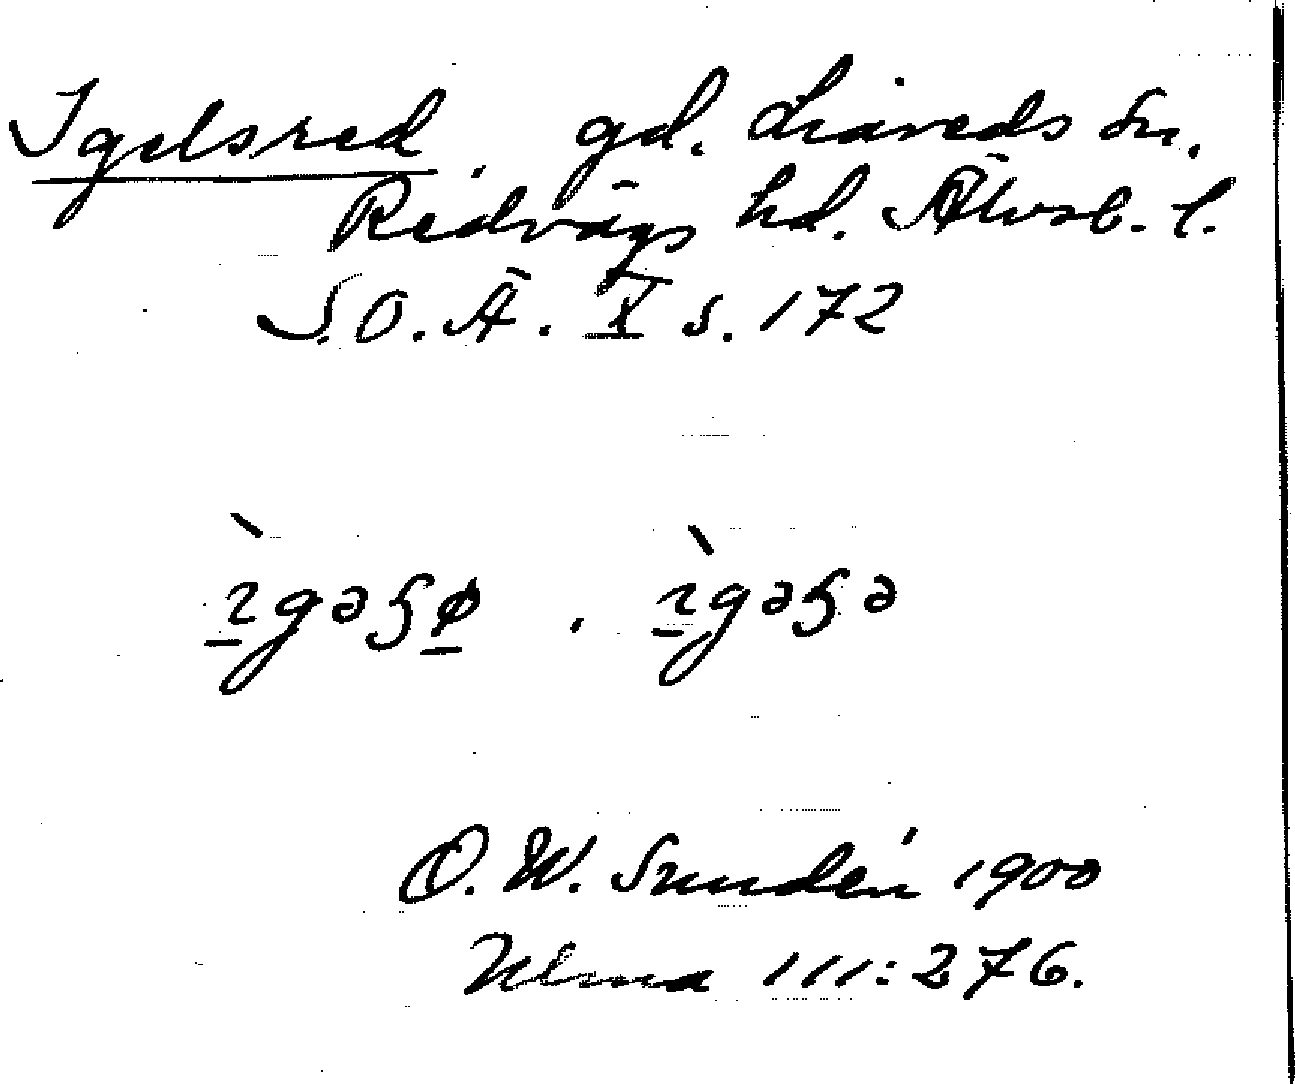 Igelsred. gd. Liareds sn.
Redvägs hd. Älvsb. l.
S.O.Ä. X s. 172
O. W. Sundén 1900
Ulma 111:276.